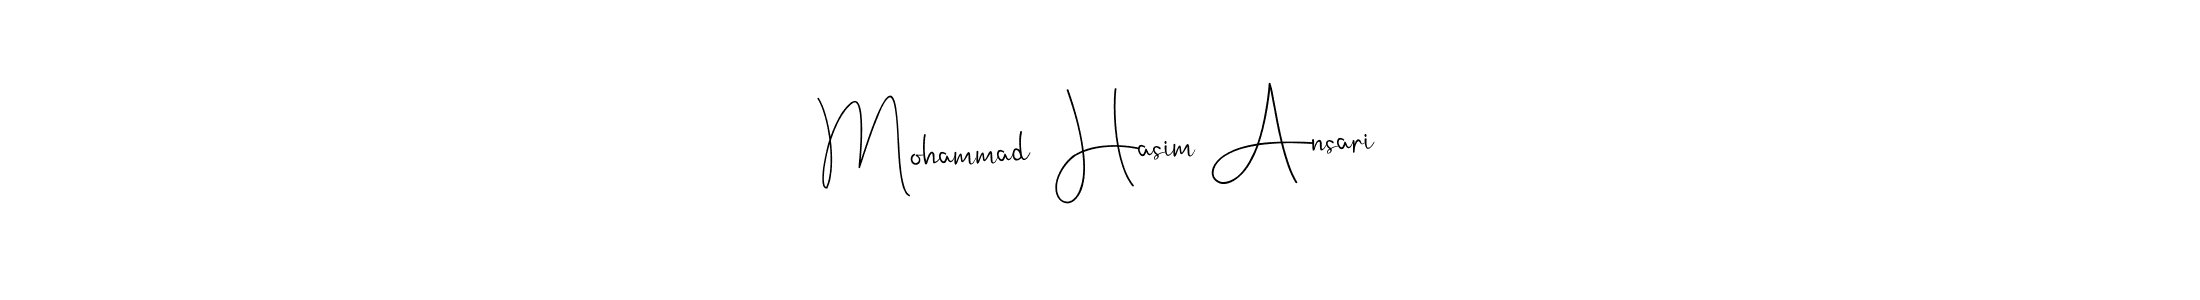 Mohammad Hasim Ansari